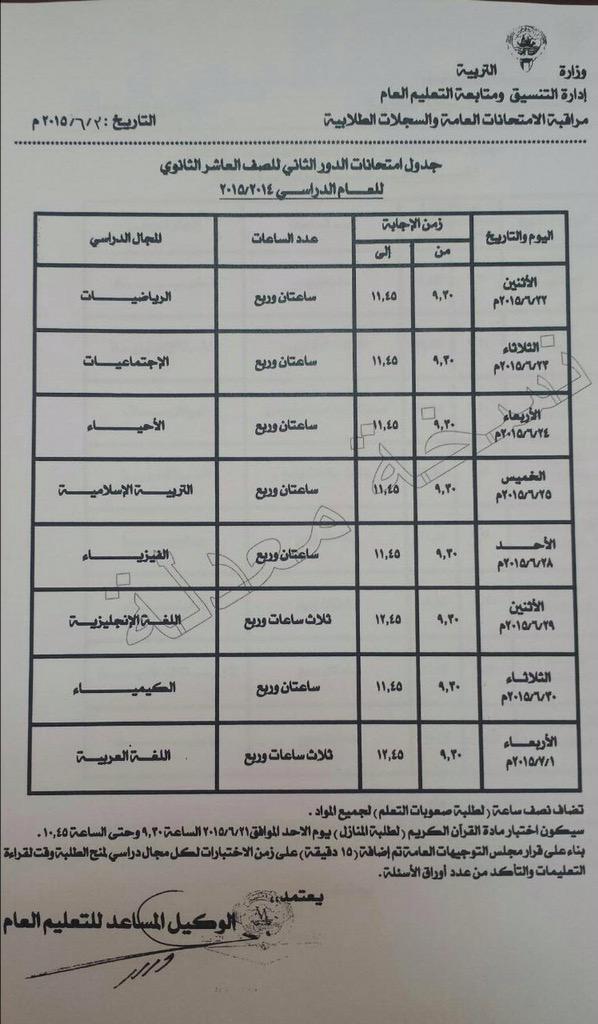 وزارة التربية
إدارة التنسيق ومتابعة التعليم العام
مراقبة الامتحانات العامة والسجلات الطلابية
التاريخ : ٢٠١٥/٦/٢ م
جدول امتحانات الدور الثاني للصف العاشر الثانوي
للعام الدراسي ٢٠١٥/٢٠١٤
اليوم والتاريخ زمن الإجابة عدد الساعات المجال الدراسي
من إلى
الأثنين ٢٠١٥/٦/٢٢م ٩,٣٠ ١١,٤٥ ساعتان وربع الرياضيات
الثلاثاء ٢٠١٥/٦/٢٣م ٩,٣٠ ١١,٤٥ ساعتان وربع الإجتماعيات
الأربعاء ٢٠١٥/٦/٢٤م ٩,٣٠ ١١,٤٥ ساعتان وربع الأحياء
الخميس ٢٠١٥/٦/٢٥م ٩,٣٠ ١١,٤٥ ساعتان وربع التربية الإسلامية
الأحد ٢٠١٥/٦/٢٨م ٩,٣٠ ١١,٤٥ ساعتان وربع الفيزياء
الأثنين ٢٠١٥/٦/٢٩م ٩,٣٠ ١٢,٤٥ ثلاث ساعات وربع اللغة الإنجليزية
الثلاثاء ٢٠١٥/٦/٣٠م ٩,٣٠ ١١,٤٥ ساعتان وربع الكيمياء
الأربعاء ٢٠١٥/٧/١م ٩,٣٠ ١٢,٤٥ ثلاث ساعات وربع اللغة العربية
نسخة معدلة
تضاف نصف ساعة ( لطلبة صعوبات التعلم ) لجميع المواد .
سيكون اختبار مادة القرآن الكريم ( لطلبة المنازل ) يوم الاحد الموافق ٢٠١٥/٦/٢١ الساعة ٩,٣٠ وحتى الساعة ١٠,٤٥ .
بناء على قرار مجلس التوجيهات العامة تم إضافة ( ١٥ دقيقة ) على زمن الاختبارات لكل مجال دراسي لمنح الطلبة وقت لقراءة
التعليمات والتأكد من عدد أوراق الأسئلة .
يعتمد،،
الوكيل المساعد للتعليم العام